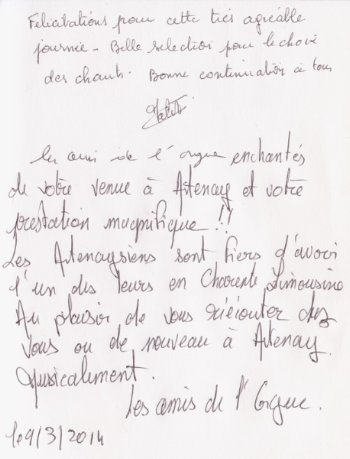 Félicitations pour cette très agréable
journée - Belle selection pour le choix
des chants. Bonne continuation à tous
de l'orgue enchantés
de votre venue à Artenay et votre
prestation magnifique !!
Les Artenaysiens sont fiers d'avoir
l'un des leurs en Charente Limousine
Au plaisir de vous réécouter chez
vous ou de nouveau à Artenay.
Musicalement.
Les amis de l'Orgue.
le 9/3/2014